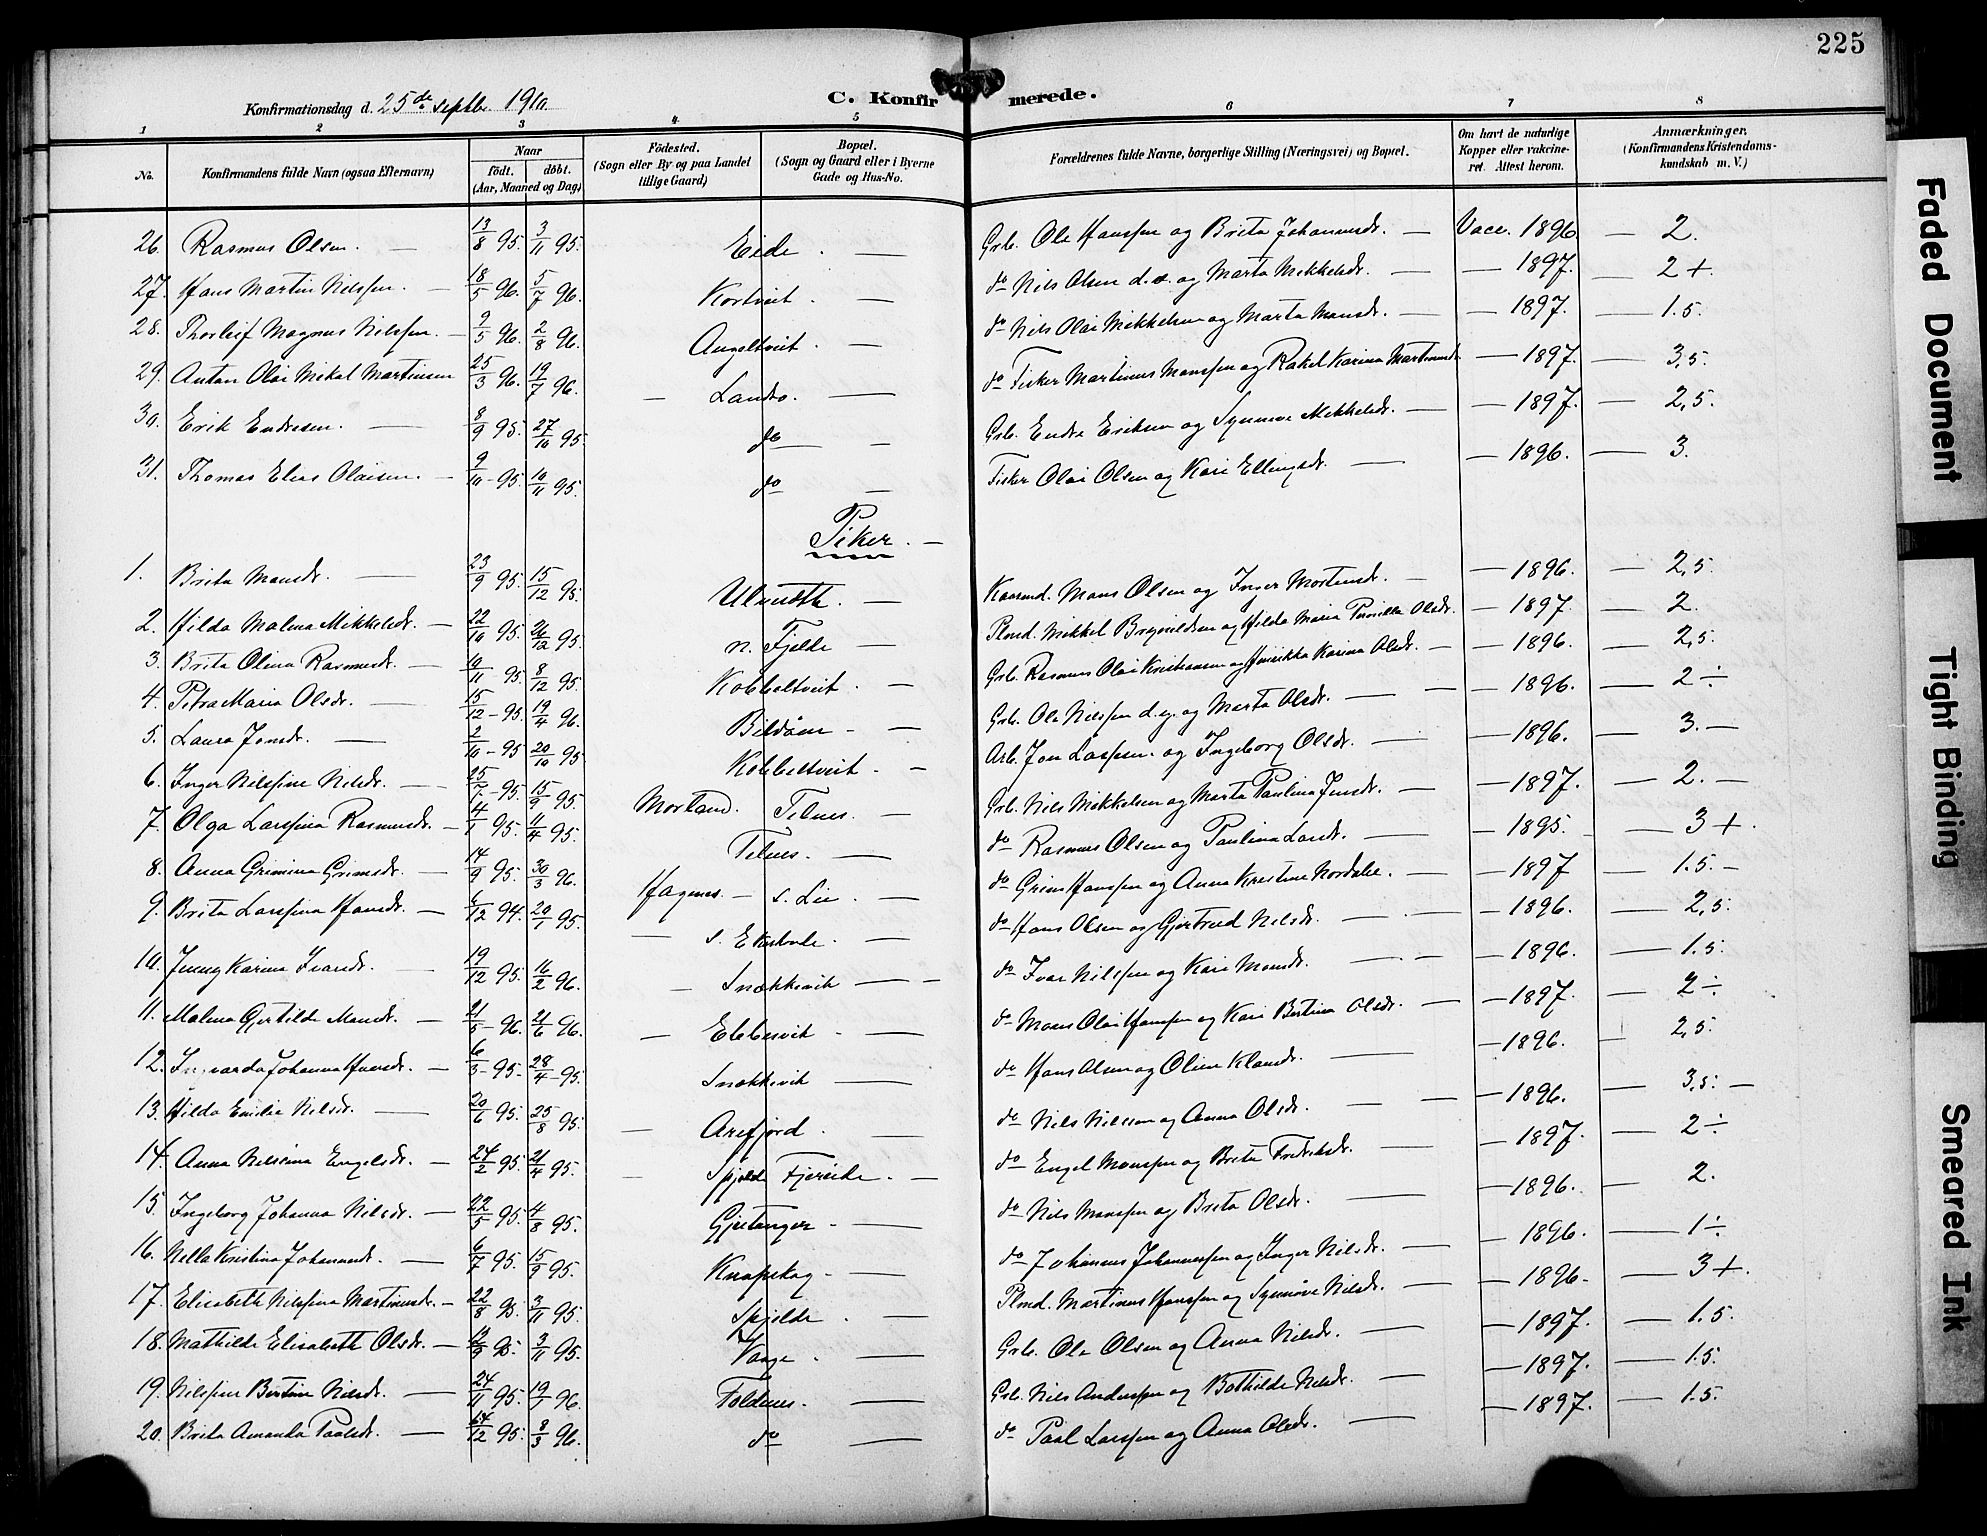 225
Konfirmationsdag d. 25de Septbr. 1910
C. Konfirmerede.
1 2 3 4 5 6 7 8
No. Konfirmandens fulde Navn (ogsaa Efternavn) Naar født. døbt. (Aar, Maaned og Dag) Fødested. (Sogn eller By og paa Landet tillige Gaard) Bopæl. (Sogn og Gaard eller i Byerne Gade og Hus-No.) Forældrenes fulde Navne, borgerlige Stilling (Næringsvei) og Bopæl. Om havt de naturlige Kopper eller vakcineret. Attest herom. Anmærkninger. (Konfirmandens Kristendomskundskab m. V.)
26. Rasmus Olsen. — 13/8 95. 3/11 95. Eide. — Grb. Ole Hanssen og Brita Johannesdr. — Vacc. 1896. — 2.
27. Hans Martin Nilssen. — 18/5 96. 5/7 96. Kortveit. — do Nils Olsen d.e. og Marta Mikkelsdr. — — 1897. — 2+.
28. Thorleif Magnus Nilssen. — 9/5 96. 2/8 96. Angeltveit. — do Nils Olai Mikkelsen og Marta Monsdr. — — 1897. — 1.5.
29. Anton Olai Mikal Martinsen 25/3 96. 19/7 96. — Landro. — do Fisker Martinus Monssen og Rakel Karina Martinusdr — 1897. — 3,5.
30. Erik Endresen. — 8/9 95. 27/10 95. do — Grb. Endre Eriksen og Synnøve Mikkelsdr. — — 1897. — 2,5.
31. Thomas Elias Olaisen. — 9/10 - 95. 10/11 95. do — Fisker Olai Olsen og Kari Ellingsdr. — — 1896. — 3.
Piker. —
1. Brita Monsdr. — 23/9 95. 15/12 95. Ulveseth. — Kaarmd. Mons Olsen og Inger Mortensdr. — — 1896. — 2,5.
2. Hilda Malena Mikkelsdr. — 22/10 95. 26/12 95. n. Fjelde — Plmd. Mikkel Brynildsen og Hilda Maria Pernilla Olsdr. — 1897. — 2.
3. Brita Olina Rasmusdr. — 10/11 - 95. 8/12 95. Kobbeltveit. — Grb. Rasmus Olai Kristiansen og Henrikka Karina Olsdr. — — 1896. — 2,5.
4. Petra Maria Olsdr. — 15/12 - 95. 19/4 96. Bildøen — — Grb. Ole Nilssen d.y. og Marta Olsdr. — — 1896. — 2 ÷
5. Laura Jonsdr. — 2/10 - 95 20/10 95. Kobbeltveit. — Arb. Jon Larssen. og Ingeborg Olsdr. — — 1896. — 3. —
6. Inger Nilssine Nilsdr. — 25/7 - 95. 15/9 95. Morland. Telnes. — Grb. Nils Mikkelsen og Marta Paulina Jensdr. — — 1897. — 2. —
7. Olga Larssina Rasmusdr. — 4/1 95. 11/4 95. Telnes. — do Rasmus Olsen og Paulina Larsdr. — — 1895. — 3 +.
8. Anna Grimina Grimsdr. — 14/9 95. 30/3 96. Hagenes. — s. Lie — do Grim Hanssen og Anna Kristine Nordalie. — — 1897 — 1.5. —
9. Brita Larssina Hansdr. — 6/12 94. 20/1 95. — s. Ekerhovde. — do Hans Olsen og Gjertrud Nilsdr. — — 1896. — 2,5.
10. Jenny Karina Ivarsdr. 19/12 95. 16/2 96. — Snekkevik — do Ivar Nilssen og Kari Monsdr. — — 1896. — 1.5.
11. Malena Gjertilde Monsdr. — 21/5 - 96. 21/6 96. — Ebbesvik — do Mons Olai Hanssen og Kari Bertina Olsdr. — — 1897. — 2 ÷
12. Johanna Hansdr. — 6/3 - 95. 28/4 - 95. Snekkevik — do Hans Olsen og Oline Klausdr. — — 1896. — 2,5.
13. Hilda Emilie Nilsdr. — 20/6 95. 25/8 95. — Arefjord. — do Nils Nilssen og Anna Olsdr. — — 1896. — 3,5. —
14. Anna Nilssina Engelsdr. — 24/2 95. 21/4 95. — Spjelde Fjereide. — do Engel Monssen og Brita Fredriksdr. — — 1897. — 2 ÷
15. Ingeborg Johanna Nilsdr. — 22/5 95. 4/8 95. Gjeitanger — do Nils Monssen og Brita Olsdr. — — 1896. — 2.
16. Nella Kristina Johannesdr. — 6/7 95. 15/9 95. Knapskog — do Johannes Johannessen og Inger Nilsdr. — — 1896. — 1 ÷
17. Elisabeth Nilssina Martinusdr. — 22/8 95. 3/11 95. Spjelde. — Plmd. Martinus Hanssen og Synnøve Nilsdr. — — 1896. — 3 +.
18. Mathilde Elisabeth Olsdr. — 95. 3/11 95. Vaage. — Grb. Ole Olsen og Anna Nilsdr. — — 1897. — 1.5.
19. Nilssine Bertine Nilsdr. — 24/11 95. 19/1 96. Foldnes. — Grb. Nils Anderssen og Bothilde Nilsdr. — — 1897. — 1.5.
20. Brita Amanda Paalsdr. — 14/12 95. 8/3 96. do — do Paal Larssen og Anna Olsdr. — — 1897. — 1.5.
Faded Document
Tight Binding
Smeared Ink